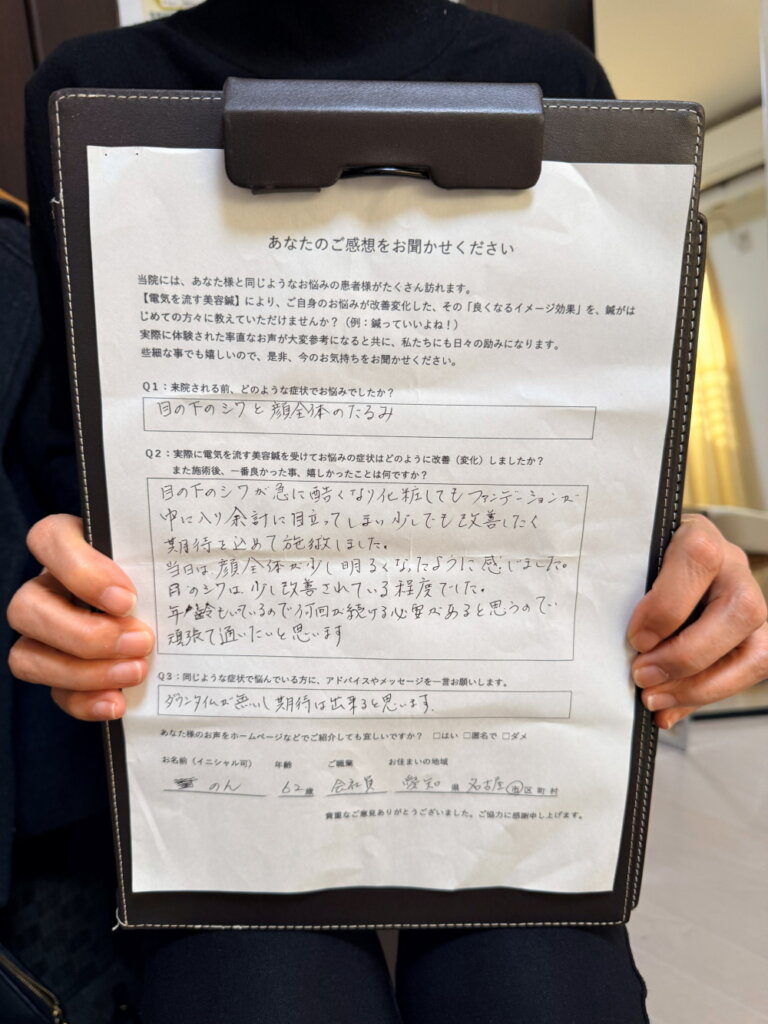 あなたのご感想をお聞かせください
当院には、あなた様と同じようなお悩みの患者様がたくさん訪れます。
【電気を流す美容鍼】により、ご自身のお悩みが改善変化した、その「良くなるイメージ効果」を、鍼がは
じめての方々に教えていただけませんか？（例：鍼っていいよね！）
実際に体験された率直なお声が大変参考になると共に、私たちにも日々の励みになります。
些細な事でも嬉しいので、是非、今のお気持ちをお聞かせください。
Q1：来院される前、どのような症状でお悩みでしたか？
目の下のシワと顔全体のたるみ
Q2：実際に電気を流す美容鍼を受けてお悩みの症状はどのように改善（変化）しましたか？
また施術後、一番良かった事、嬉しかったことは何ですか？
目の下のシワが急に酷くなり化粧してもファンデーションが
中に入り余計に目立ってしまい少しでも改善したく
期待を込めて施術しました。
当日は顔全体が少し明るくなったように感じました。
目のシワは少し改善されている程度でした。
年齢もいているので何回か続ける必要があると思うので
頑張て通いたいと思います
Q3：同じような症状で悩んでいる方に、アドバイスやメッセージを一言お願いします。
ダウンタイムが無いし期待は出来ると思います.
あなた様のお声をホームページなどでご紹介しても宜しいですか？ □はい □匿名で □ダメ
お名前（イニシャル可） 年齢 ご職業 お住まいの地域
のん 62歳 会社員 愛知 県 名古屋 市区町村
貴重なご意見ありがとうございました。ご協力に感謝申し上げます。